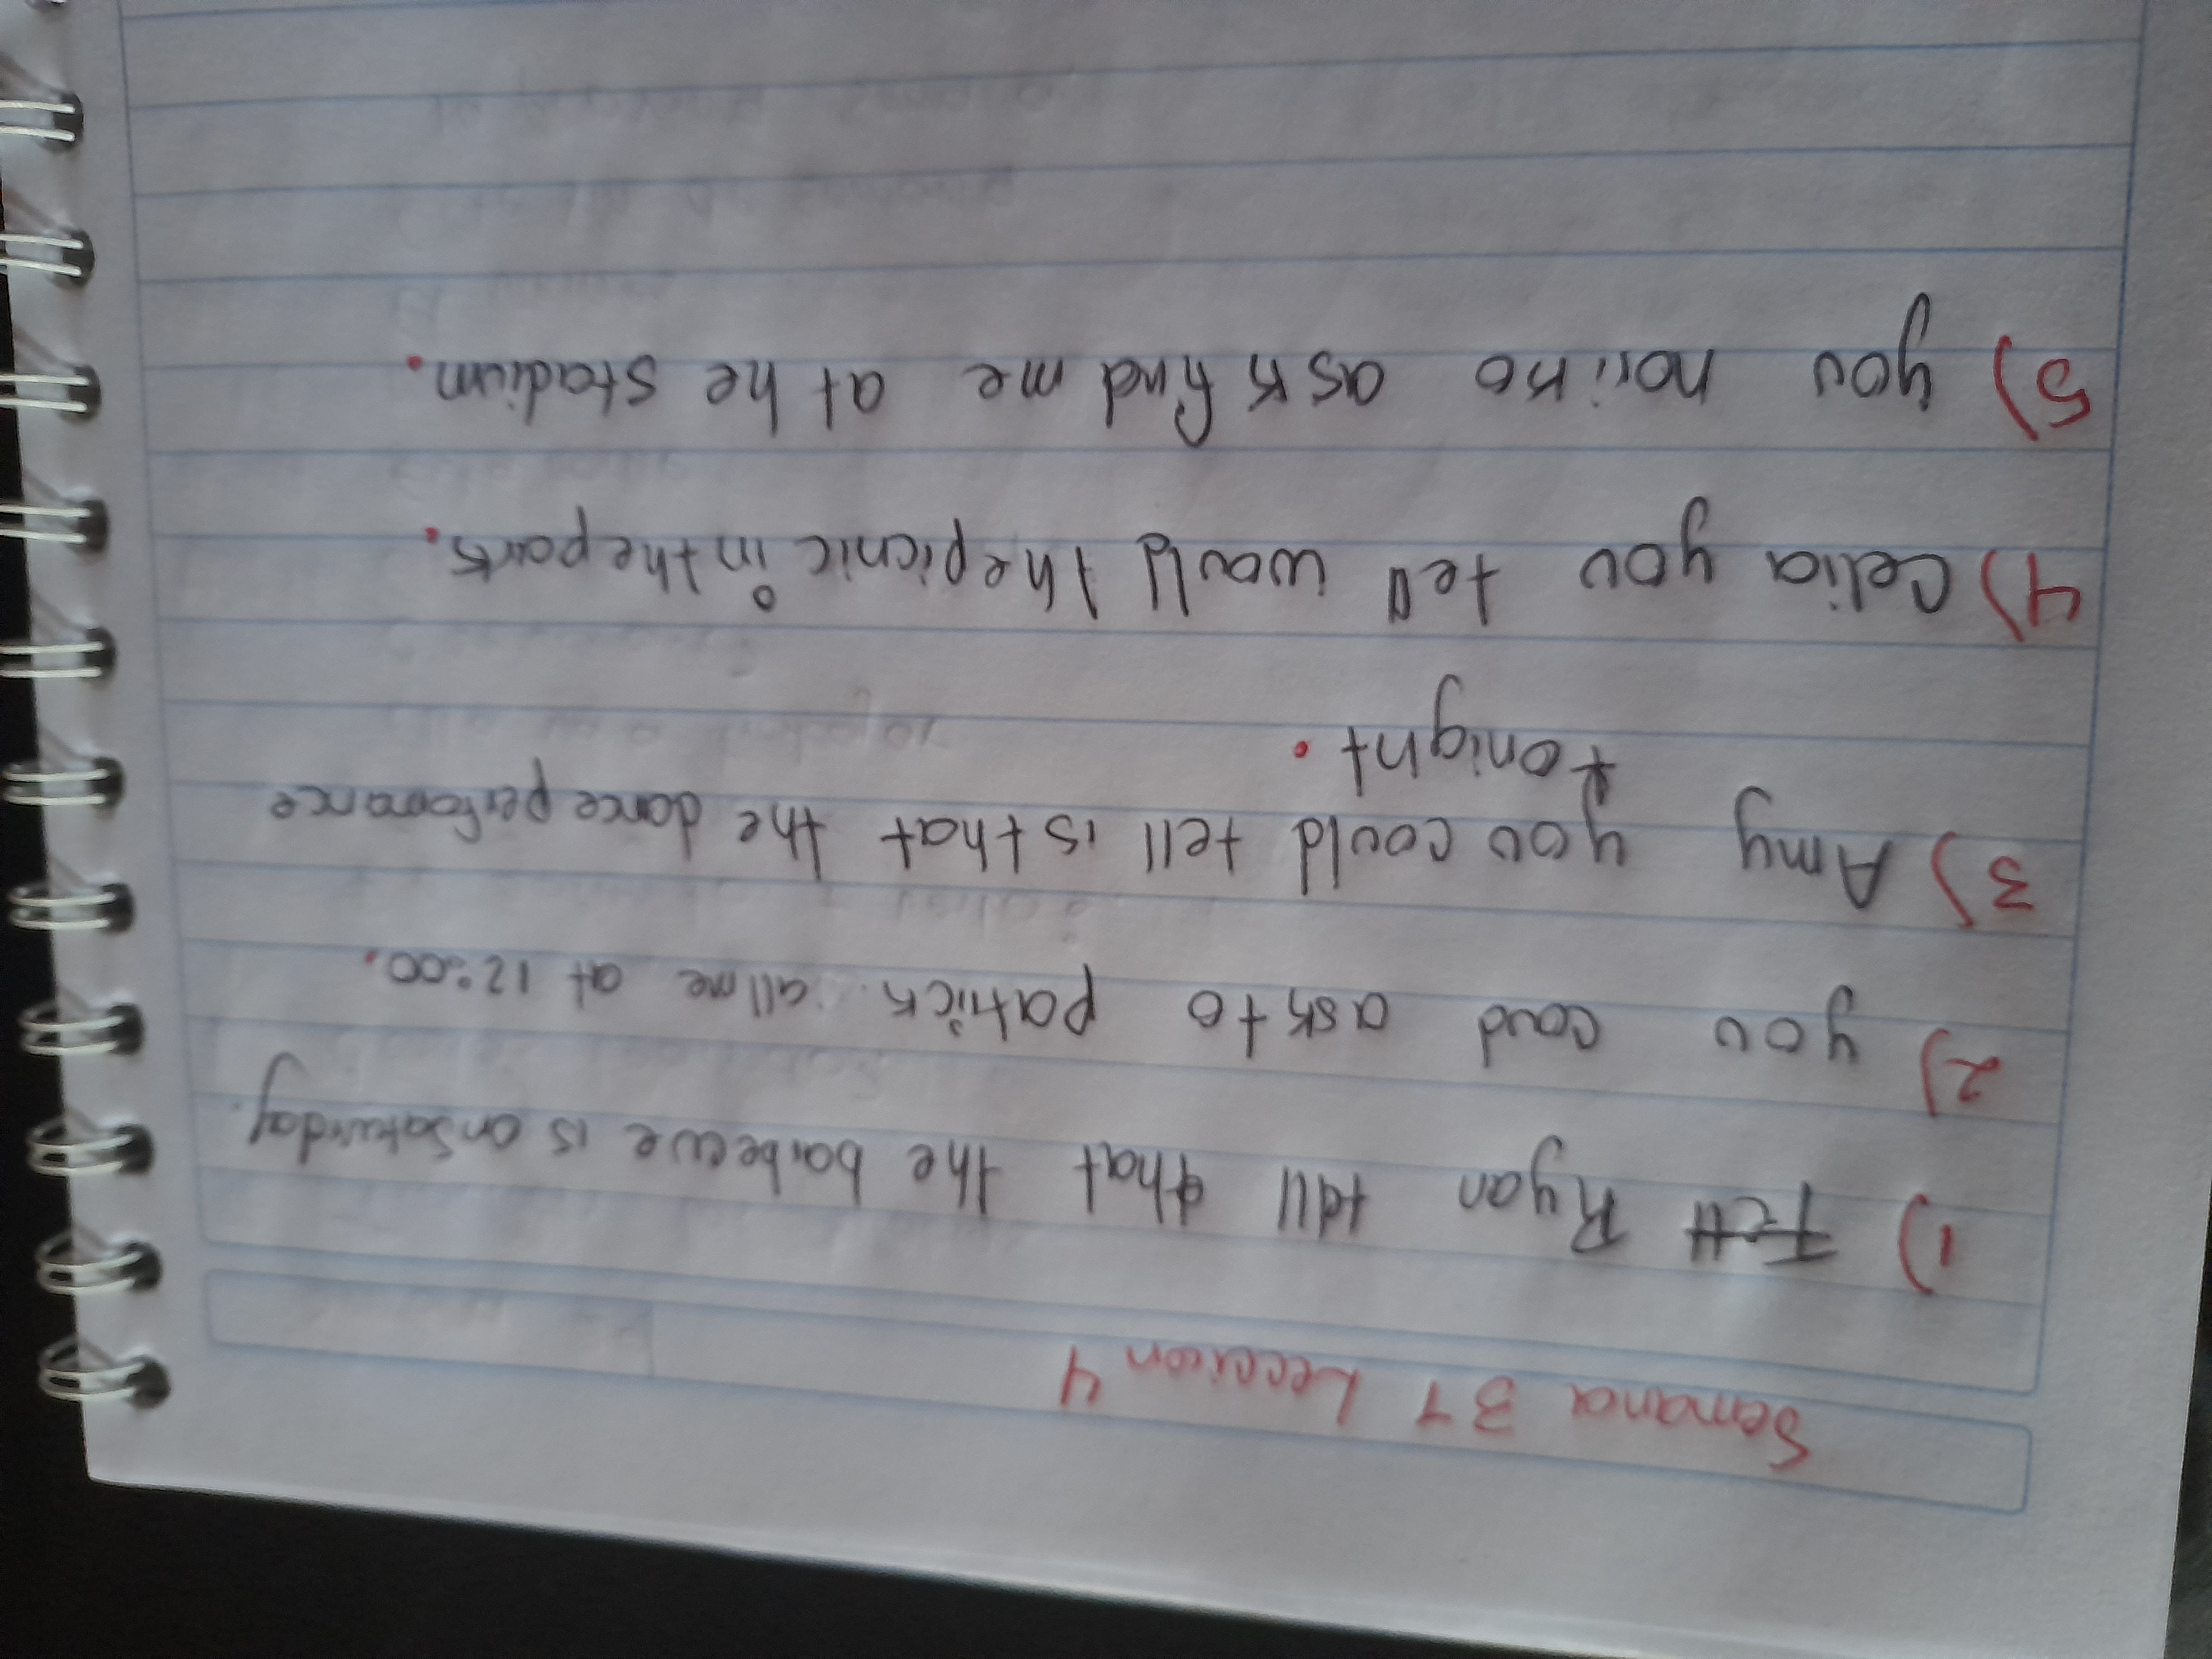 Semana 31 Leccion 4
1) Tell Ryan tell that the barbecue is on Saturday.
2) you coud ask to patrick all me at 12:00.
3) Amy you could tell is that the dance performance
tonight.
4) Celia you tell would the picnic in the park.
5) you noriko ask find me at he stadium.